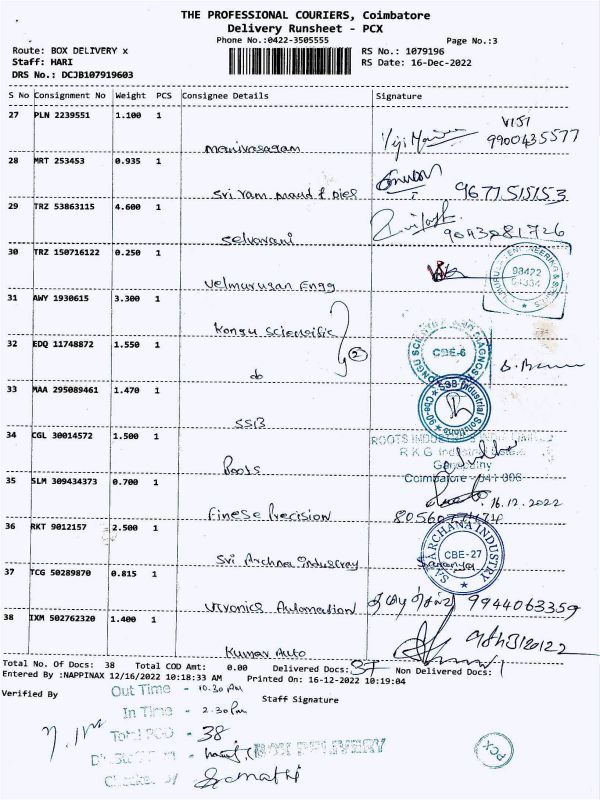 THE PROFESSIONAL COURIERS, Coimbatore
Delivery Runsheet - PCX
Phone No.:0422-3505555
Page No.:3
Route: BOX DELIVERY x
RS No.: 1079196
Staff: HARI
RS Date: 16-Dec-2022
DRS No.: DCJB107919603
S No Consignment No Weight PCS Consignee Details Signature
27 PLN 2239551 1.100 1 Manivasagam
VIJI
9900435577
28 MRT 253453 0.935 1
9677515153
29 TRZ 53863115 4.600 1 Selvarani
9043281726
30 TRZ 150716122 0.250 1 Velmurugan Engg
98422
31 AWY 1930615 3.300 1 Kongu Scientific
32 EDQ 11748872 1.550 1 do
2
CBE-6
33 MAA 295089461 1.470 1 SSB
SSB Industrial Solutions
34 CGL 30014572 1.500 1 Roots
ROOTS
Coimbatore
35 SLM 309434373 0.700 1 Finese Precision
16.12.2022
36 RKT 9012157 2.500 1 Sri Archna Industray
ARCHANA INDUSTRY
CBE-27
37 TCG 50289870 0.815 1 Automation
9944063359
38 IXM 502762320 1.400 1 Kumar Auto
Total No. Of Docs: 38 Total COD Amt: 0.00 Delivered Docs: 37 Non Delivered Docs: 1
Entered By :NAPPINAX 12/16/2022 10:18:33 AM Printed On: 16-12-2022 10:19:04
Verified By
Staff Signature
Out Time - 10.30 Am
In Time - 2.30 Pm
Total POD - 38
BOX DELIVERY
Checked By
PCX